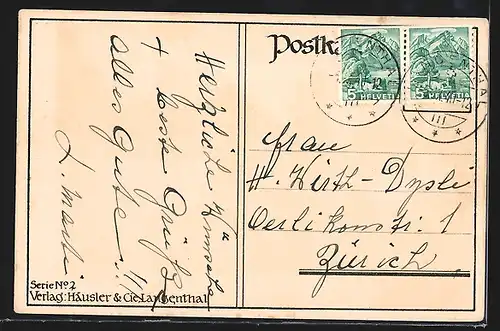 Postka
5
HELVETIA
5
HELVETIA
Herzliche Wünsche
+ beste Grüße
alles Gute
Frau
H. Wirth-Dysli
Oerlikonstr. 1
Zürich
Serie No. 2
Verlag: Häusler & Cie, Langenthal